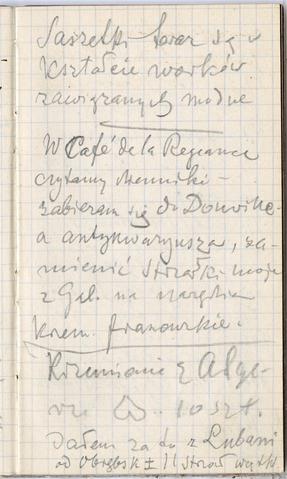 Saszetki teraz są w
kształcie worków
zawiązanych modne
W Café de la Regence
czytamy dzienniki –
zabieram się do Douville-
a antykwaryusza, za-
mienić strzałki moje
z Gal. na
krzem. francuskie.
Krzemienie z Alge-
ru 10 szt.
Dałem za to z Lubani
od 11 strzał